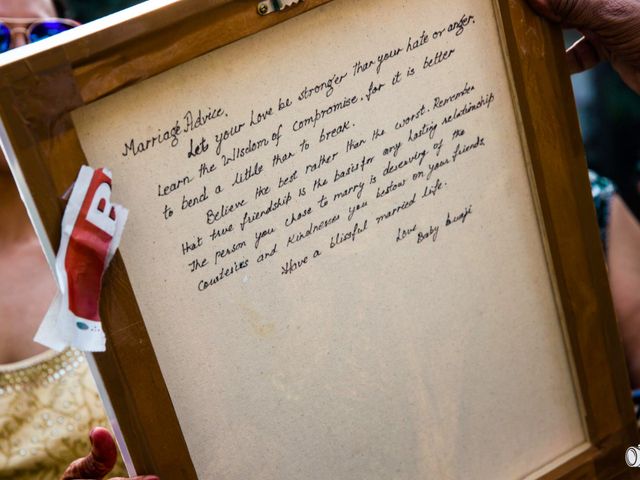 Marriage Advice.
Let your Love be stronger than your hate or anger.
Learn the Wisdom of compromise. for it is better
to bend a little than to break.
Believe the best rather than the worst. Remember
that true friendship is the basis for any lasting relationship
The person you chose to marry is deserving of the
Courtesies and Kindnesses you bestow on your friends.
Have a blissful married life.
Love
Baby buaji